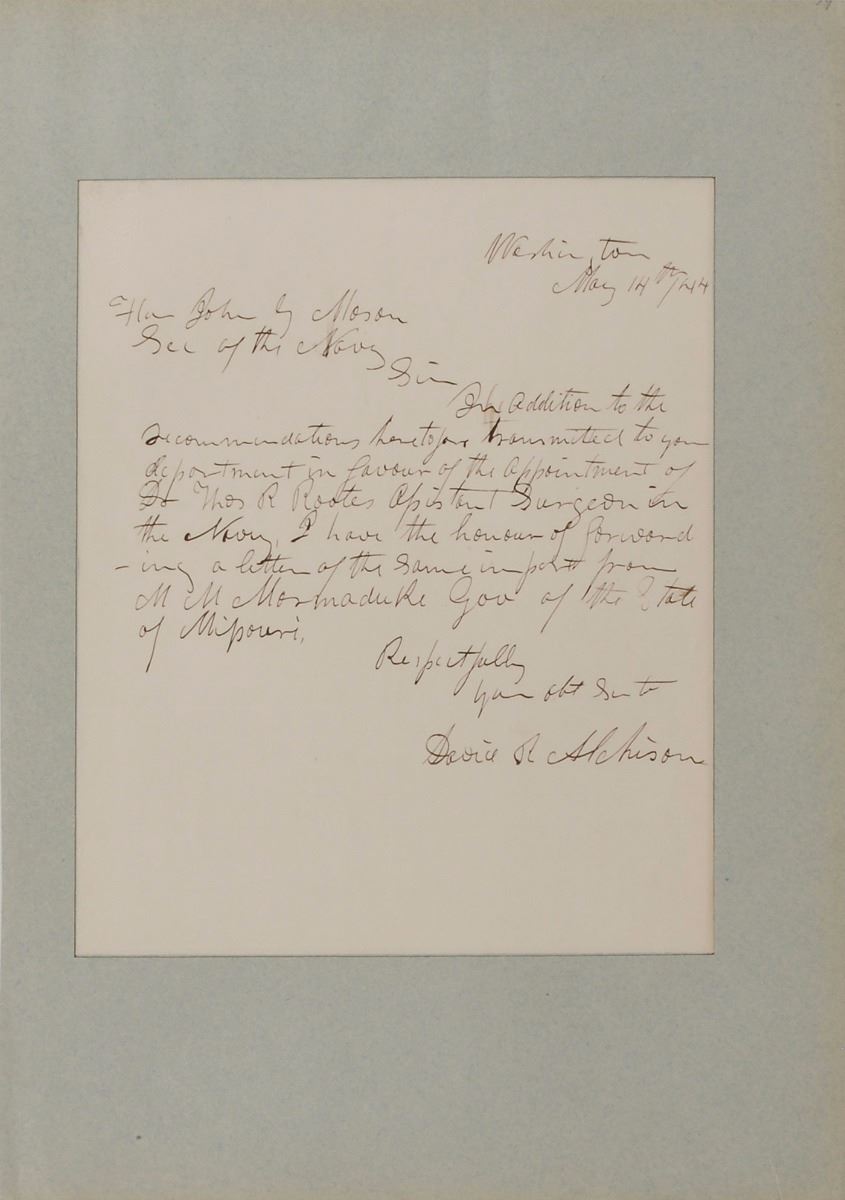 Washington
May 14th/44
Hon John Y Mason
Sec of the Navy
Sir
In addition to the
recommendations heretofore transmitted to your
department in favour of the appointment of
Dr Thos R Rootes Assistant Surgeon in
the Navy, I have the honour of forward
-ing a letter of the same import from
M M Marmaduke Gov of the State
of Missouri,
Respectfully
your obt Servt
David R Atchison